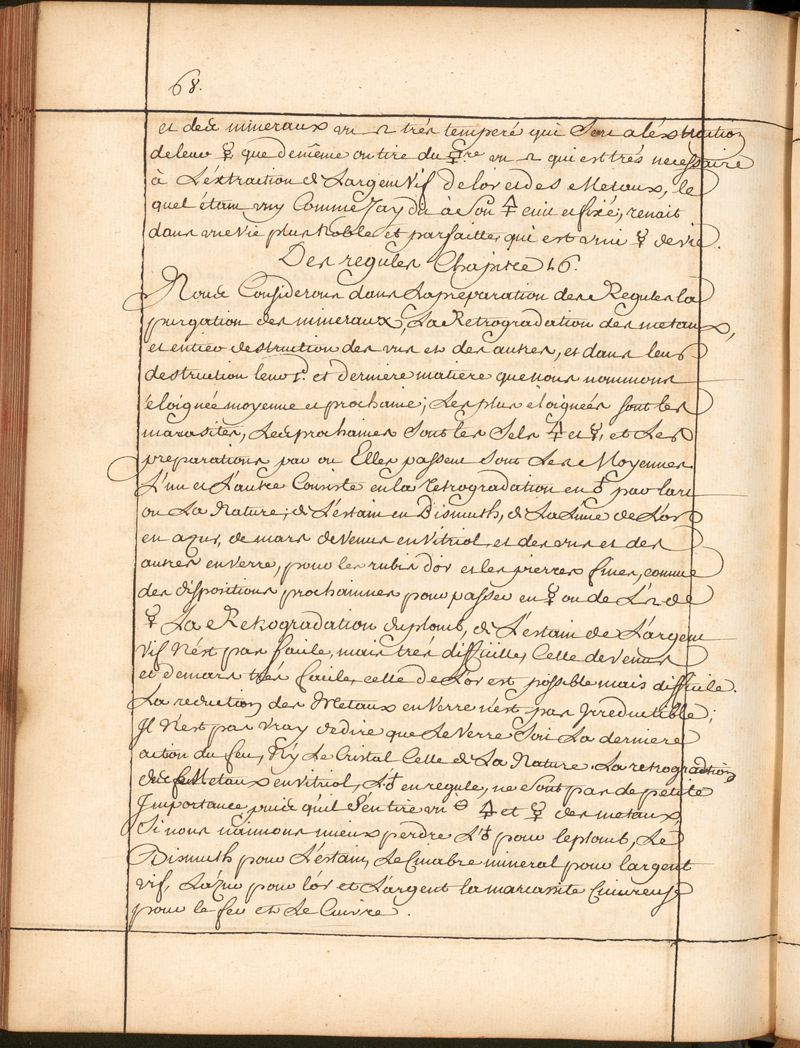 68.
et des mineraux un ♎ trés temperé qui Sert a léxtraction
de leur ☿ que de même on tire du 🜍re un ♎ qui est trés necessaire
à L'éxtraction de L'argent Vif de lor et des Metaux, le
quel étant uny Comme J'ay dit à Son 🜍 cuit et fixé, renait
dans une vie plus Noble et parfaitte, qui est un ☿ de vie.
Des regules Chapitre 46.
Nous Considerons dans La preparation des Regules la
purgation des mineraux, La Retrogradation des metaux,
et entiere destruction des uns et des autres, et dans leur
destruction leur 1.re et derniere matiere que nous nommons
éloignée moyenne et prochaine; Les plus eloignées sont les
marcasites, Les prochaines Sont les Sels 🜍 et ☿, et Les
preparations par ou Elles passent sont Les Moyennes
L'un et L'autre Consiste en la retrogradation en ♁ par lart
ou La Nature; de L'éstain en Bismuth, de La Lune de L'or
en azur, de mars de Venus en Vitriol, et des uns et des
autres en verre, pour les rubis d'or et les pierres fines, comme
des dispositions prochaines pour passer en ☿ ou de L'♎ de
☿ La Retrogradation du plomb, de L'éstain de L'argent
Vif N'est pas facile, mais trés difficille, Celle de venus
et de mars trés facile, celle de L'or est possible mais difficile.
La reduction des Metaux en Verre n'est pas Jrreductible;
Jl N'est pas Vray de dire que Le Verre Soit La derniere
action du feu, Ny Le Cristal Celle de La Nature. La retrogradtion
des Metaux en vitriol, L'♁ en regule, ne Sont pas de petite
Jmportance, puis qu'il S'en tire un 🜔 🜍 et ☿ des metaux
Si nous n'aimons mieux perdre L'♁ pour le plomb, Le
Bismuth pour L'éstain, Le Cinabre mineral pour largent
vif, L'azur pour l'ór et L'argent la marcasite Cuivreuse
pour le feu et Le Cuivre.